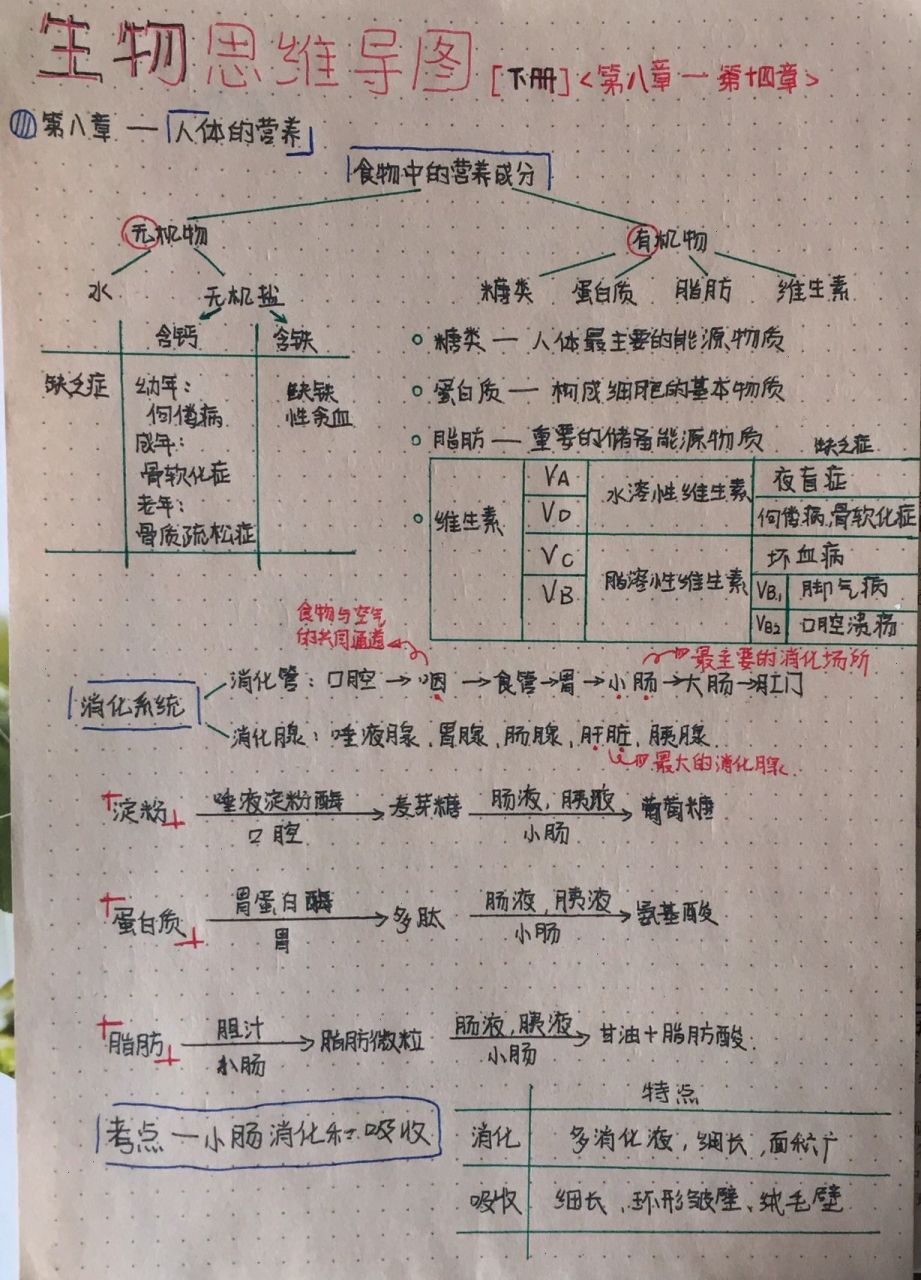 生物思维导图 [下册]<第八章一第十四章>
第八章 一「人体的营养」
食物中的营养成分
无机物 有机物
水 无机盐 糖类 蛋白质 脂肪 维生素
含钙 含铁
缺乏症 幼年: 佝偻病 成年: 骨软化症 老年: 骨质疏松症 缺铁性贫血
糖类 一 人体最主要的能源物质
蛋白质 一 构成细胞的基本物质
脂肪 一 重要的储备能源物质
缺乏症
维生素
VA 水溶性维生素 夜盲症
VD 佝偻病,骨软化症
VC 脂溶性维生素 坏血病
VB VB1 脚气病
VB2 口腔溃疡
食物与空气
的共同通道
最主要的消化场所
消化系统
消化管: 口腔→咽→食管→胃→小肠→大肠→肛门
消化腺: 唾液腺、胃腺、肠腺、肝脏、胰腺
最大的消化腺
淀粉 唾液淀粉酶 口腔 → 麦芽糖 肠液,胰液 小肠 → 葡萄糖
蛋白质 胃蛋白酶 胃 → 多肽 肠液,胰液 小肠 → 氨基酸
脂肪 胆汁 小肠 → 脂肪微粒 肠液,胰液 小肠 → 甘油+脂肪酸
考点一小肠消化和吸收
特点
消化 多消化液,细长,面积广
吸收 细长、环形皱壁、绒毛壁